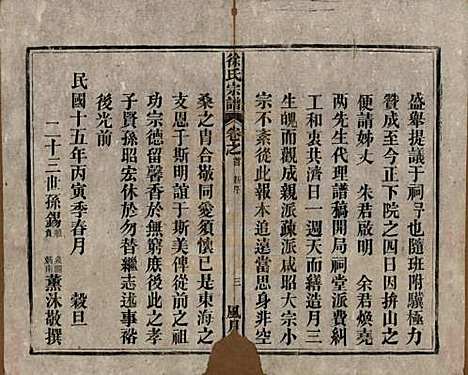 盛舉提議于祠弓也隨班附驥極力
贊成至今正下院之四日因拚山之
便請姊丈 朱君啟明 余君煥堯
两先生代理譜稿開局祠堂派費刻
工和衷共濟日一週天而繕造月三
生魄而觀成親派疏派咸昭大宗小
宗不紊從此報本追遠當思身非空
徐氏宗譜 卷之首 新序 三
桑之冉合敬同愛須懷已是東海之
支恩于斯明誼于斯美俾從前之祖
功宗德留馨香於無窮庶後此之孝
子賢孫昭宏休於勿替繼志述事裕
後光前
民國十五年丙寅季春月 穀旦
二十三世孫錫 薰沐敬撰